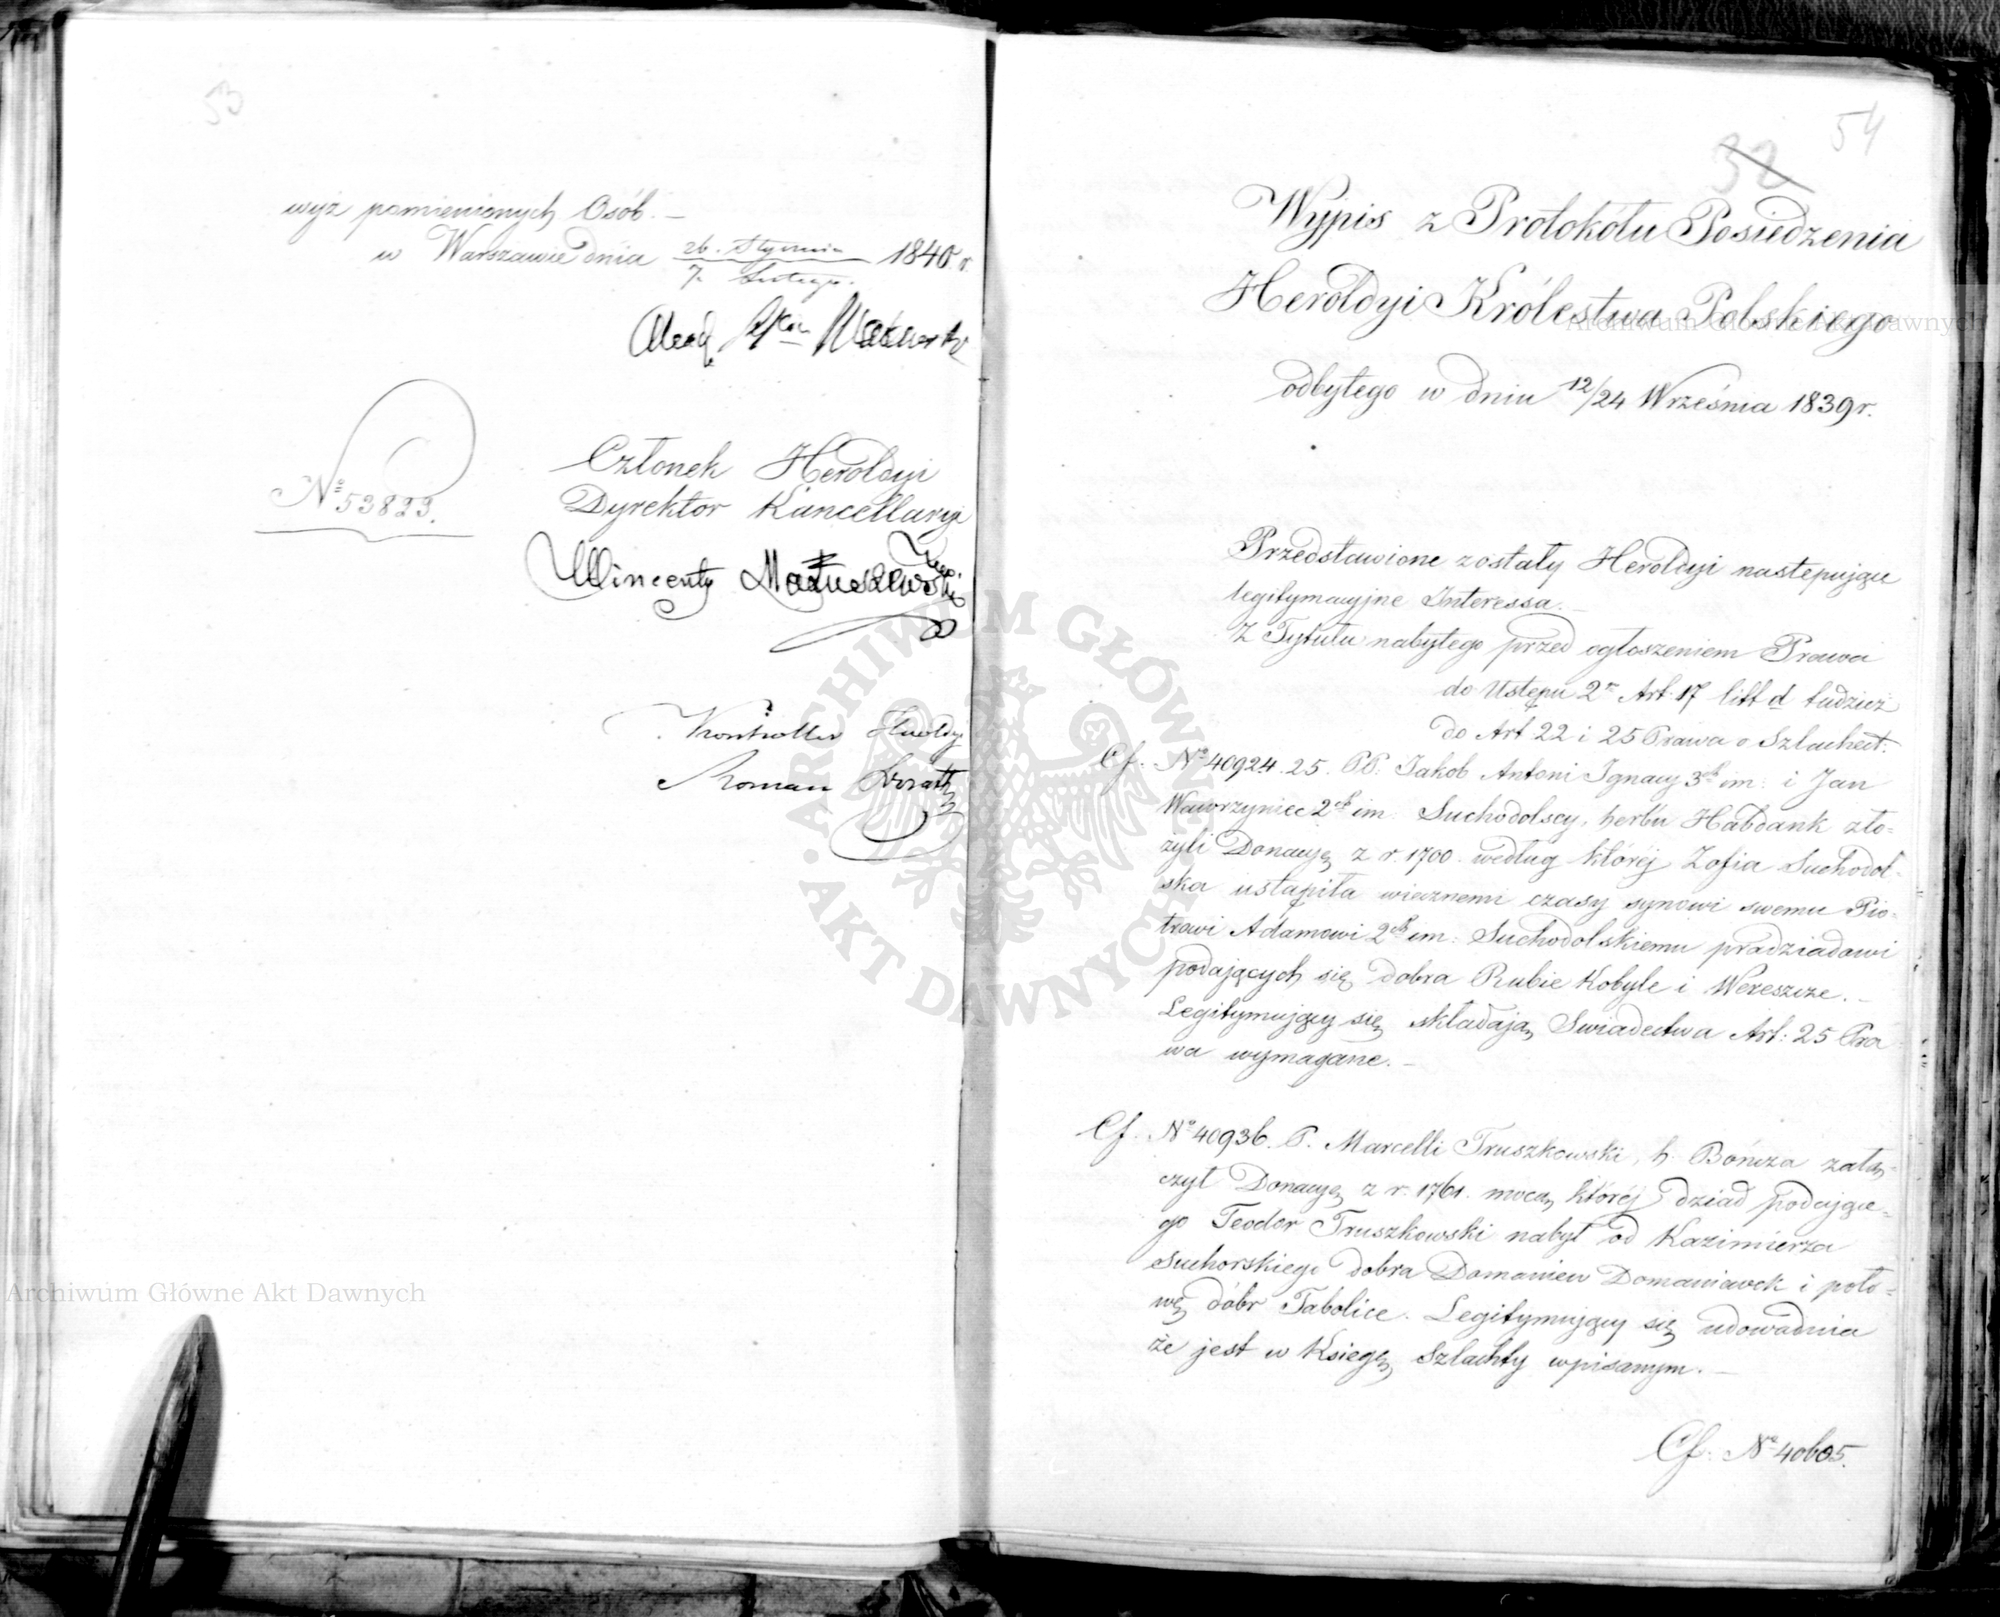 53
wyż pomienionych Osób. —
w Warszawie dnia 26. Stycznia / 7. Lutego. 1840 r.
Członek Heroldyi
Nº 53823.
Dyrektor Kancellaryi
Wincenty Matuszewski
Kontroller Heroldyi
Roman
54
32
Wypis z Protokółu Posiedzenia
Heroldyi Królestwa Polskiego
odbytego w dniu 12/24 Września 1839 r.
Przedstawione zostały Heroldyi następujące
legitymacyjne Interessa. —
Z Tytułu nabytego przed ogłoszeniem Prawa
do Ustępu 2º Art. 17 litt d tudzież
do Art 22 i 25 Prawa o Szlachect:
Cf. Nº 40924.25. PP. Jakób Antoni Ignacy 3ch im: i Jan
Wawrzyniec 2ch im: Suchodolscy, herbu Habdank zło-
żyli Donacyę z r. 1700. według któréj Zofia Suchodol-
ska ustąpiła wiecznemi czasy synowi swemu Pio-
trowi Adamowi 2ch im: Suchodolskiemu pradziadowi
podających się dobra Rubie Kobyle i Wereszcze. —
Legitymujący się składają Swiadectwa Art: 25 Pra
wa wymagane. —
Cf. Nº 40936. P. Marcelli Truszkowski, h. Bończa załą-
czył Donacyę z r. 1761. mocą któréj dziad podające-
go Teodor Truszkowski nabył od Kazimierza
Suchorskiego dobra Domaniew Domaniewek i poło-
wę dóbr Tabolice. Legitymujący się udowadnia
że jest w Księgę Szlachty wpisanym. —
Cf. Nº 40605.
Archiwum Główne Akt Dawnych
Archiwum Główne Akt Dawnych
ARCHIWUM GŁÓWNE · AKT DAWNYCH ·